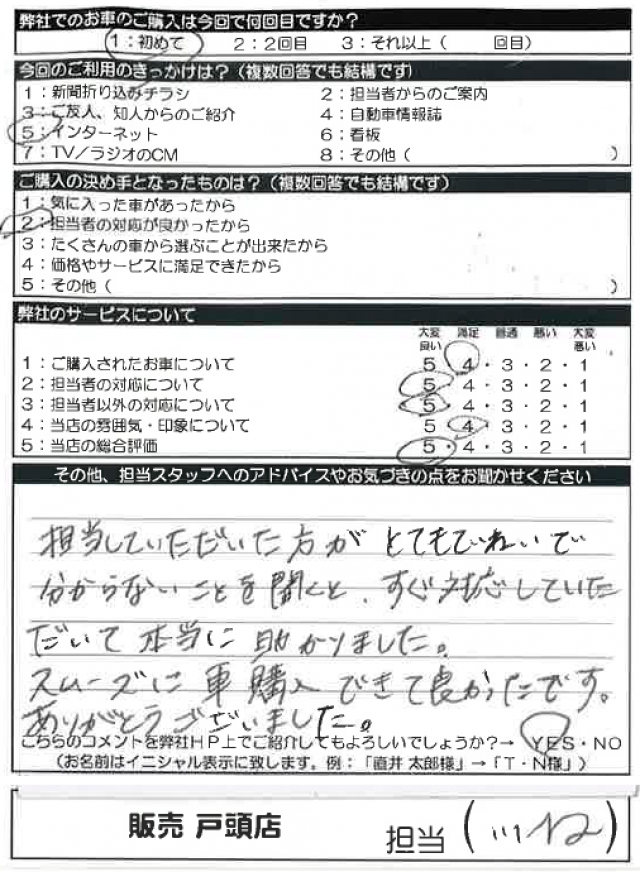 弊社でのお車のご購入は今回で何回目ですか？
1：初めて 2：2回目 3：それ以上（ 回目）
今回のご利用のきっかけは？（複数回答でも結構です）
1：新聞折り込みチラシ 2：担当者からのご案内
3：ご友人、知人からのご紹介 4：自動車情報誌
5：インターネット 6：看板
7：TV／ラジオのCM 8：その他（ ）
ご購入の決め手となったものは？（複数回答でも結構です）
1：気に入った車があったから
2：担当者の対応が良かったから
3：たくさんの車から選ぶことが出来たから
4：価格やサービスに満足できたから
5：その他（ ）
弊社のサービスについて
大変良い 満足 普通 悪い 大変悪い
1：ご購入されたお車について 5 4・3・2・1
2：担当者の対応について 5 4・3・2・1
3：担当者以外の対応について 5 4・3・2・1
4：当店の雰囲気・印象について 5 4・3・2・1
5：当店の総合評価 5・4・3・2・1
その他、担当スタッフへのアドバイスやお気づきの点をお聞かせください
担当していただいた方がとてもていねいで
分からないことを聞くと、すぐ対応していた
だいて本当に助かりました。
スムーズに車購入できて良かったです。
ありがとうございました。
こちらのコメントを弊社HP上でご紹介してもよろしいでしょうか？→ YES・NO
（お名前はイニシャル表示に致します。例：「直井 太郎様」→「T・N様」）
販売 戸頭店 担当（ ）